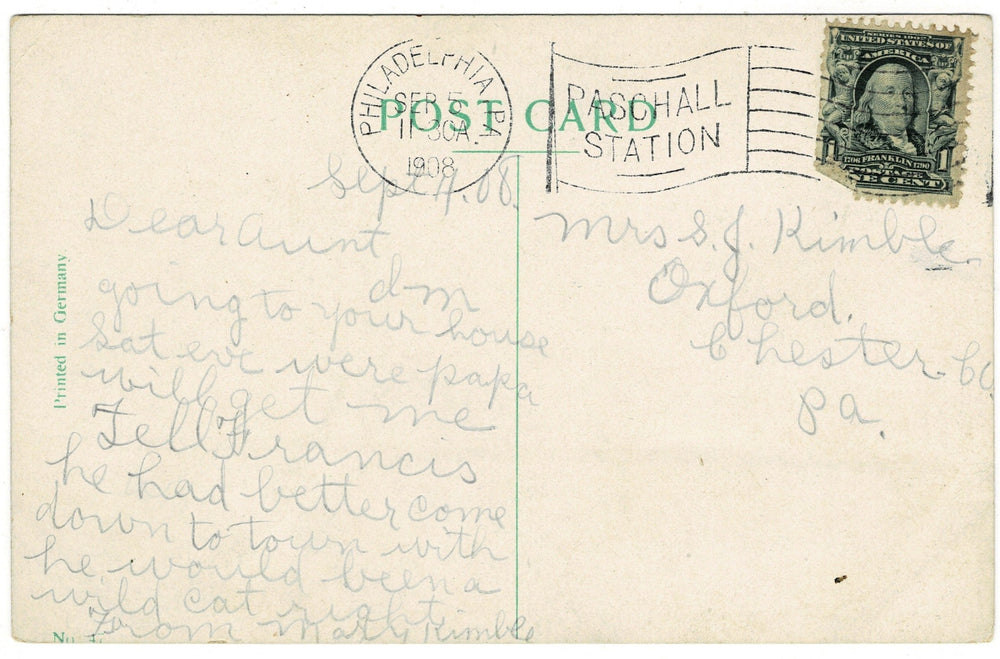 PHILADELPHIA, PA.
SEP 5
11-30A.
1908
PASCHALL
STATION
SERIES 1902
UNITED STATES OF
AMERICA
1 1706 FRANKLIN 1790 1
POSTAGE
ONE CENT
POST CARD
Printed in Germany
Sept 4. 08.
Dear Aunt
going to your house
Sat eve were papa
will get me
Tell Francis
he had better come
down to town with
he would been a
wild cat right
From Mary Kimble
No.
Mrs S. J. Kimble
Oxford.
Chester Co.
Pa.